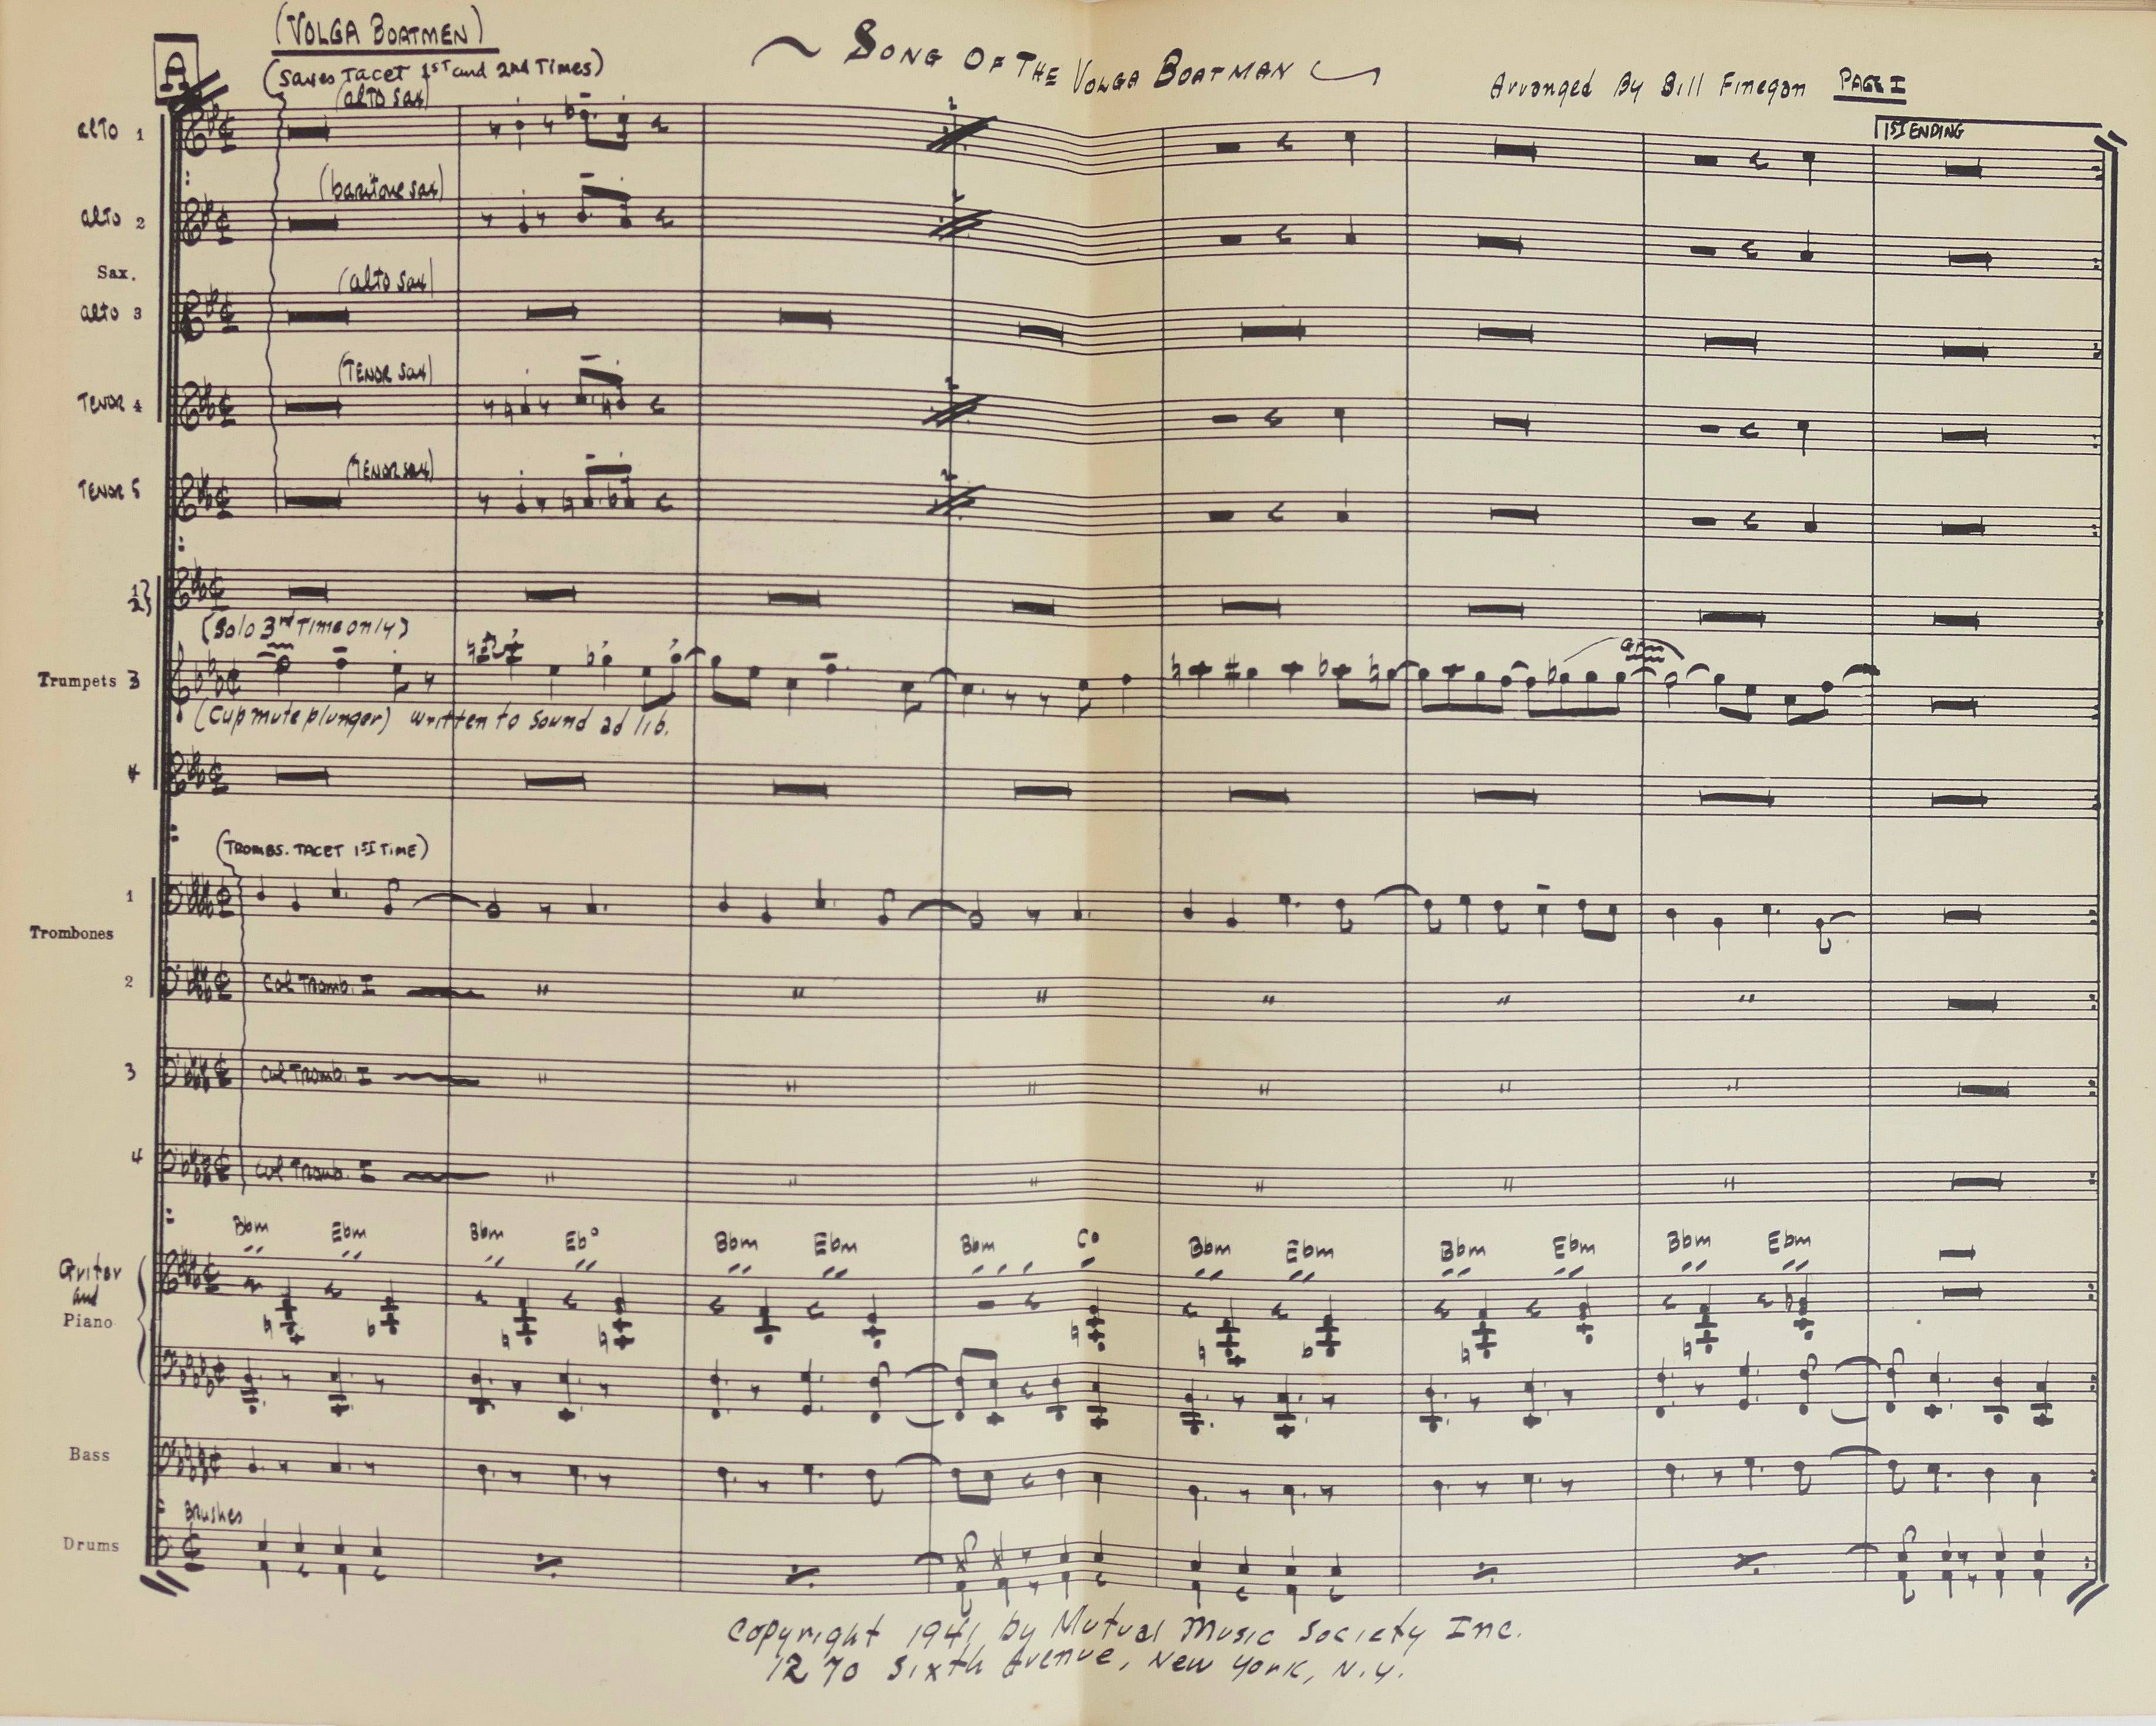 (VOLGA BOATMEN)
~ SONG OF THE VOLGA BOATMAN
A
(Saxes Tacet 1ST and 2nd Times)
Arranged By Bill Finegan PAGE I
1ST ENDING
alto 1
(alto sax)
2
alto 2
(baritone sax)
2
Sax.
alto 3
(alto sax)
TENOR 4
(TENOR sax)
2
TENOR 5
(TENOR sax)
2
1
2
(Solo 3rd Time only)
Trumpets 3
(Cup mute plunger) written to sound ad lib.
4
(TROMBS. TACET 1ST TIME)
1
Trombones
2
Col Tromb. I " " " " " "
3
Col Tromb. I " " " " " "
4
Col Tromb. I " " " " " "
Bbm Ebm Bbm Eb° Bbm Ebm Bbm C° Bbm Ebm Bbm Ebm Bbm Ebm
Guitar
and
Piano
Bass
Brushes
Drums
Copyright 1941 by Mutual Music Society Inc.
1270 Sixth Avenue, New York, N.Y.